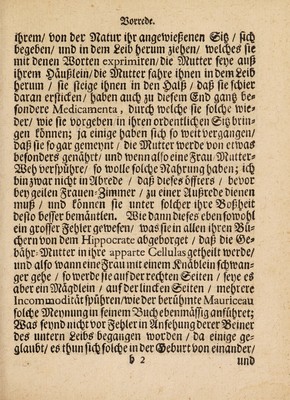 Vorrede.
ihrem/ von der Natur ihr angewießenen Sitz / sich
begeben/ und in dem Leib herum ziehen/ welches sie
mit denen Worten exprimiren/ die Mutter seye auß
ihrem Häußlein/ die Mutter fahre ihnen in dem Leib
herum / sie steige ihnen in den Halß / daß sie schier
daran ersticken/ haben auch zu diesem End gantz be-
sondere Medicamenta, durch welche sie solche wie-
der/ wie sie vorgeben in ihren ordentlichen Sitz brin-
gen können; ja einige haben sich so weit vergangen/
daß sie so gar gemeynt / die Mutter werde von etwas
besonders genährt/ und wenn also eine Frau Mutter-
Weh verspühre/ so wolle solche Nahrung haben; ich
bin zwar nicht in Abrede / daß dieses öffters / bevor
bey geilen Frauen-Zimmer / zu einer Außrede dienen
muß / und können sie unter solcher ihre Boßheit
desto besser bemäntlen. Wie dann dieses eben sowohl
ein grosser Fehler gewesen/ was sie in allen ihren Bü-
chern von dem Hippocrate abgeborget / daß die Ge-
bähr-Mutter in ihre apparte Cellulas getheilt werde/
und also wann eine Frau mit einem Knäblein schwan-
ger gehe / so werde sie auf der rechten Seiten / seye es
aber ein Mägdlein / auf der lincken Seiten / mehrere
Incommodität spühren/ wie der berühmte Mauriceau
solche Meynung in seinem Buch ebenmässig anführet;
Was seynd nicht vor Fehler in Ansehung derer Beiner
des untern Leibs begangen worden / da einige ge-
glaubt/ es thun sich solche in der Geburt von einander/
b 2
und